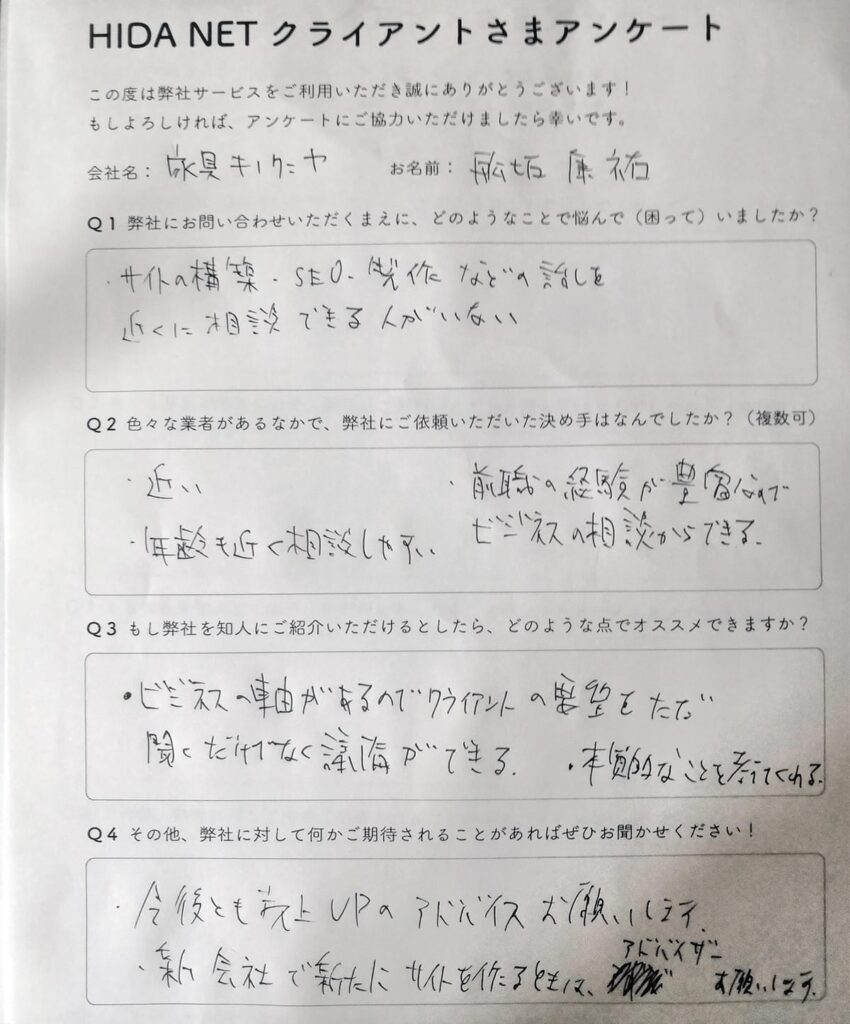 HIDA NET クライアントさまアンケート
この度は弊社サービスをご利用いただき誠にありがとうございます！
もしよろしければ、アンケートにご協力いただけましたら幸いです。
会社名： 家具キノクニヤ お名前： 舩坂 康祐
Q1 弊社にお問い合わせいただくまえに、どのようなことで悩んで（困って）いましたか？
・サイトの構築・SEO・製作などの話しを
近くに相談できる人がいない
Q2 色々な業者があるなかで、弊社にご依頼いただいた決め手はなんでしたか？（複数可）
・近い
・年齢も近く相談しやすい
・前職の経験が豊富なので
ビジネスの相談からできる.
Q3 もし弊社を知人にご紹介いただけるとしたら、どのような点でオススメできますか？
・ビジネスの軸があるのでクライアントの要望をただ
聞くだけでなく議論ができる.
・本質的なことを考えてくれる.
Q4 その他、弊社に対して何かご期待されることがあればぜひお聞かせください！
・今後とも売上UPのアドバイスお願いします.
・新会社で新たにサイトを作るときは、アドバイザーお願いします.